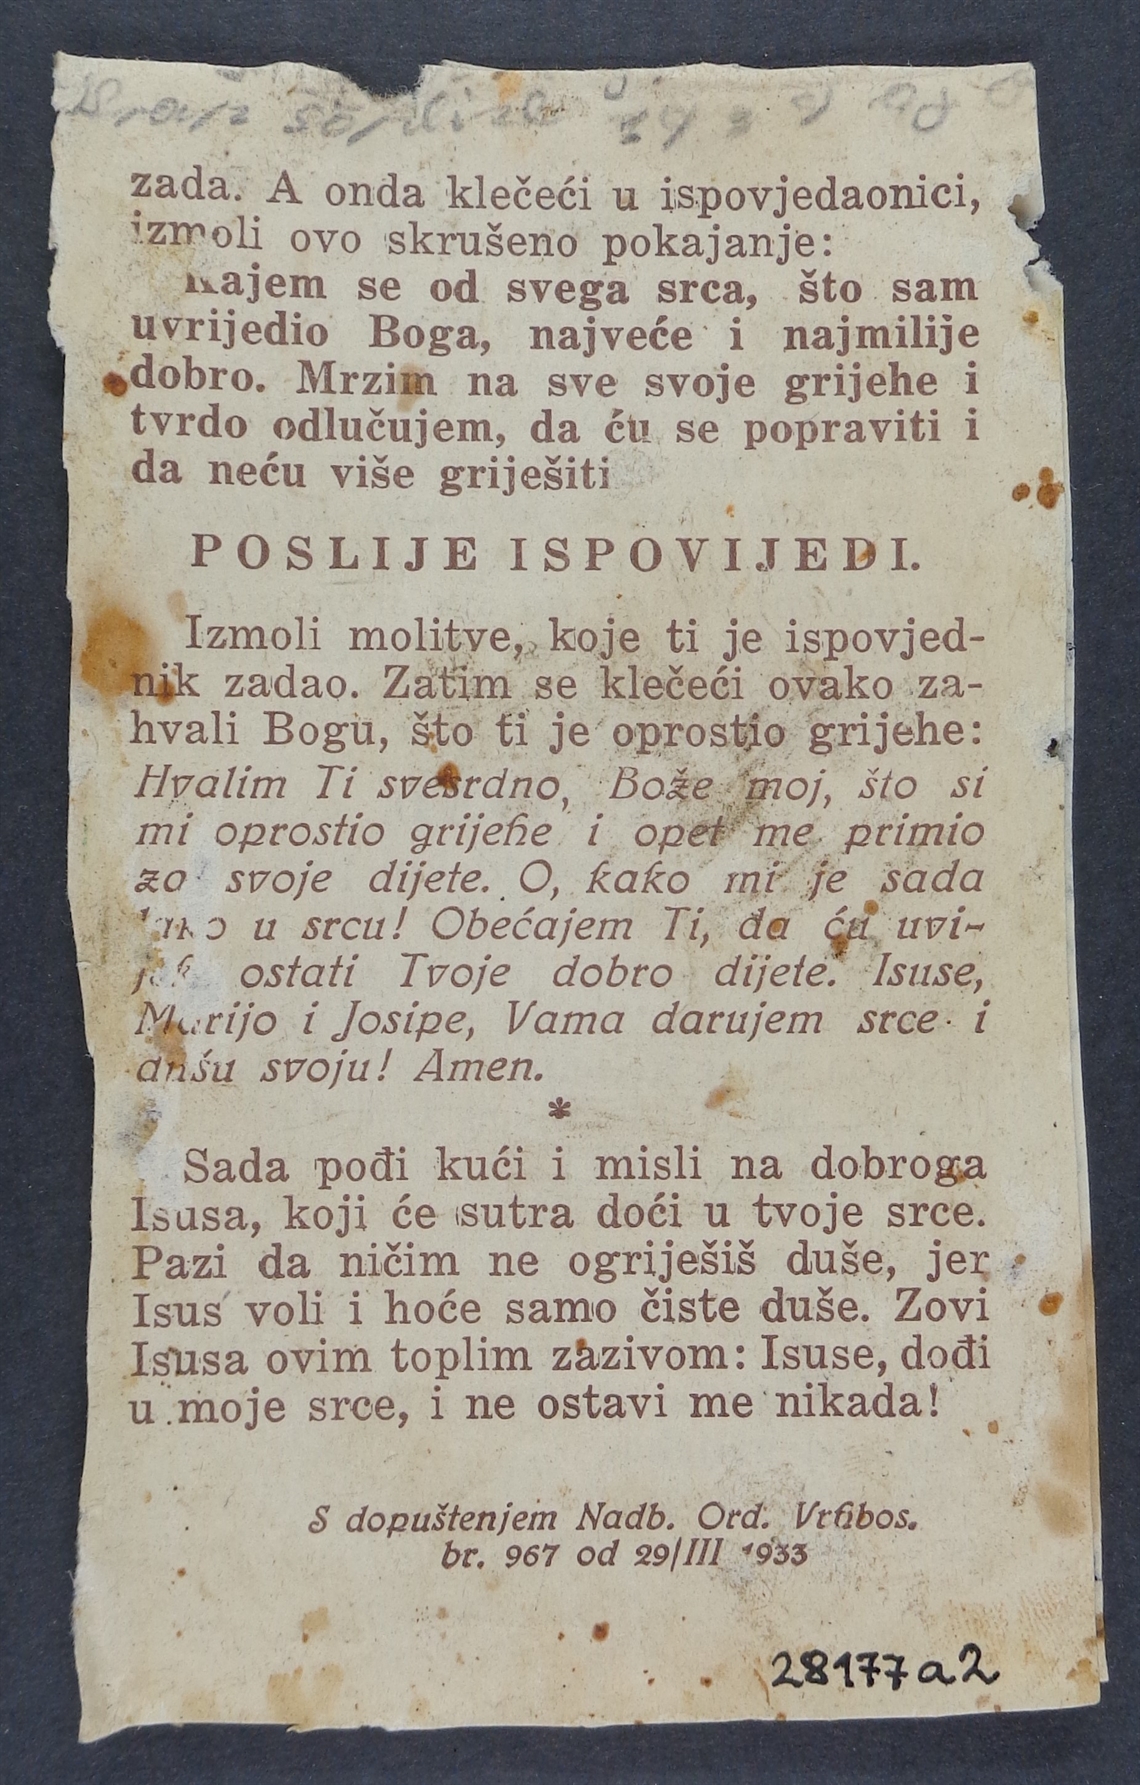 zada. A onda klečeći u ispovjedaonici,
izmoli ovo skrušeno pokajanje:
Kajem se od svega srca, što sam
uvrijedio Boga, najveće i najmilije
dobro. Mrzim na sve svoje grijehe i
tvrdo odlučujem, da ću se popraviti i
da neću više griješiti
POSLIJE ISPOVIJEDI.
Izmoli molitve, koje ti je ispovjed-
nik zadao. Zatim se klečeći ovako za-
hvali Bogu, što ti je oprostio grijehe:
Hvalim Ti svesrdno, Bože moj, što si
mi oprostio grijehe i opet me primio
za svoje dijete. O, kako mi je sada
lako u srcu! Obećajem Ti, da ću uvi-
jek ostati Tvoje dobro dijete. Isuse,
Marijo i Josipe, Vama darujem srce i
dušu svoju! Amen.
*
Sada pođi kući i misli na dobroga
Isusa, koji će sutra doći u tvoje srce.
Pazi da ničim ne ogriješiš duše, jer
Isus voli i hoće samo čiste duše. Zovi
Isusa ovim toplim zazivom: Isuse, dođi
u moje srce, i ne ostavi me nikada!
S dopuštenjem Nadb. Ord. Vrhbos.
br. 967 od 29/III 1933
28177a2